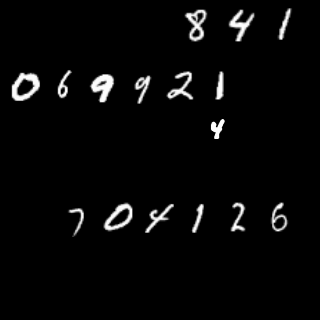 8 4 1
0 6 9 9 2 1
4
7 0 4 1 2 6